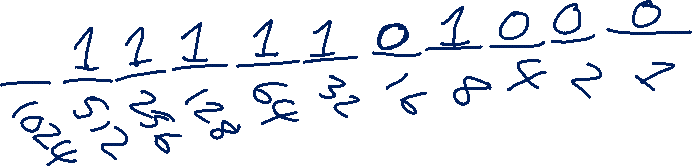 1 1 1 1 1 0 1 0 0 0
1024 512 256 128 64 32 16 8 4 2 1